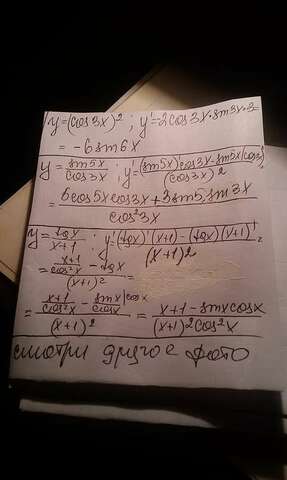 y=(cos3x)²; y'=2cos3x·sin3x·3=
= -6sin6x
y = sin5x/cos3x; y'=((sin5x)'cos3x-sin5x(cos3x)')/(cos3x)²
= (5cos5xcos3x+3sin5xsin3x)/cos²3x
y = tgx/(x+1); y'=((tgx)'(x+1)-(tgx)(x+1)')/(x+1)² =
= ((x+1)/cos²x - tgx)/(x+1)² =
= ((x+1)/cos²x - sinx/cosx |cosx)/(x+1)² = (x+1-sinxcosx)/((x+1)²cos²x)
смотри другое фото